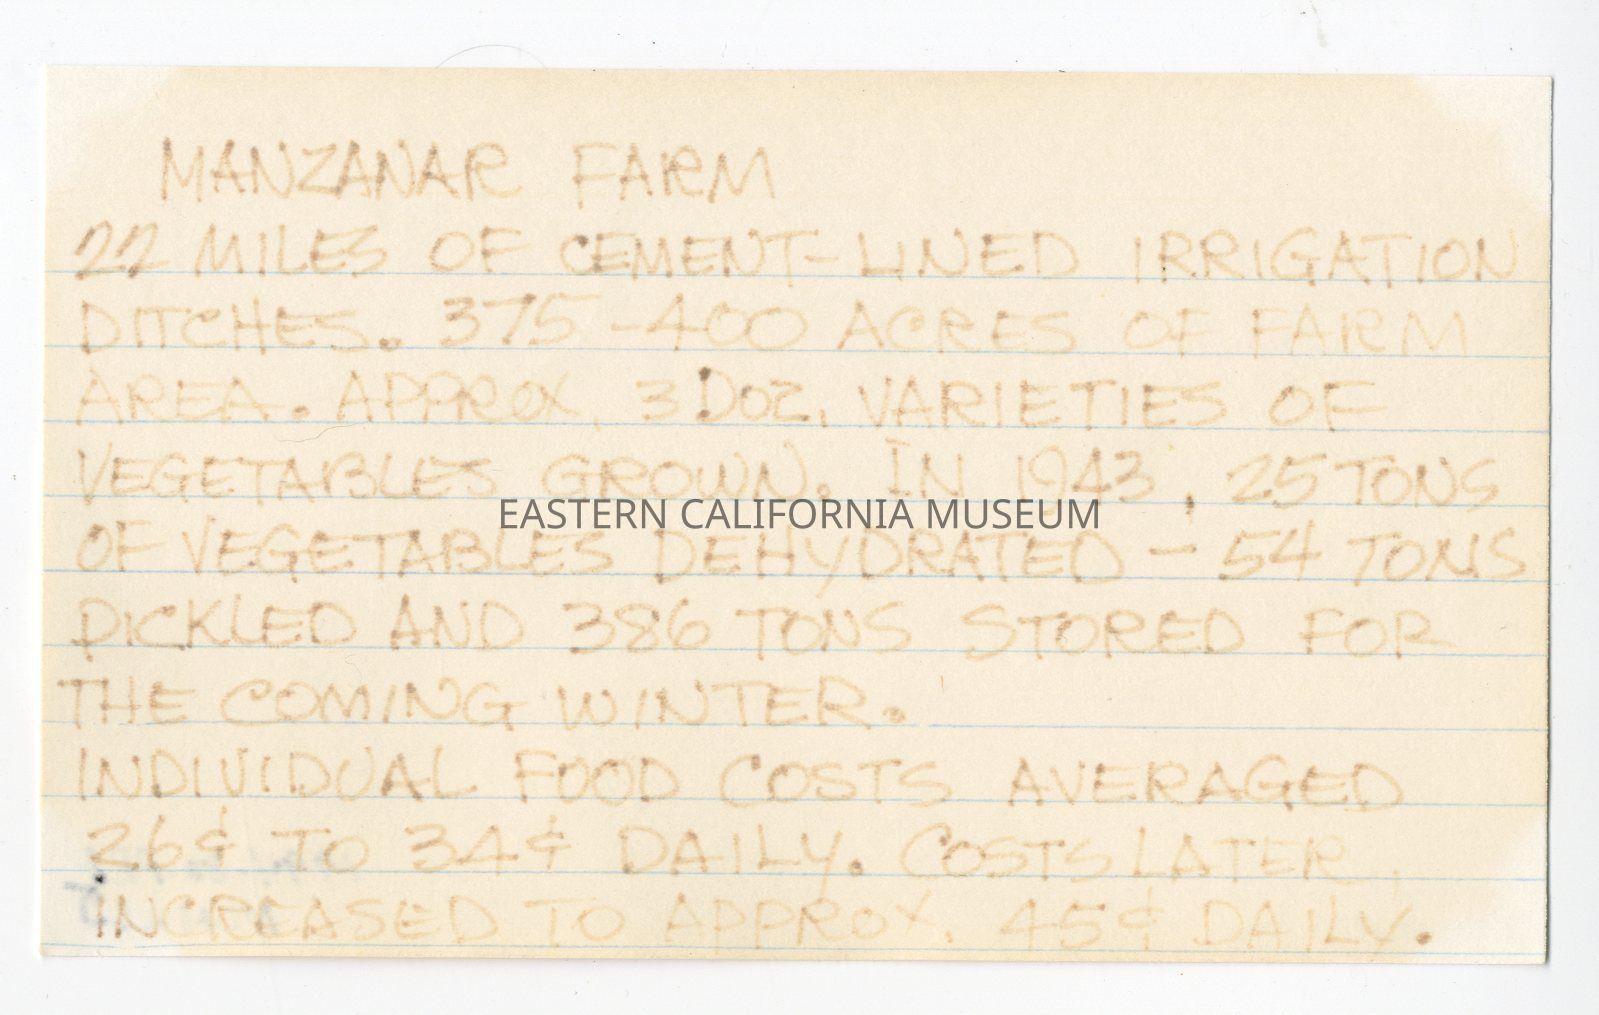 MANZANAR FARM
22 MILES OF CEMENT-LINED IRRIGATION
DITCHES. 375-400 ACRES OF FARM
AREA. APPROX. 3 DOZ. VARIETIES OF
VEGETABLES GROWN. IN 1943, 25 TONS
EASTERN CALIFORNIA MUSEUM
OF VEGETABLES DEHYDRATED - 54 TONS
PICKLED AND 386 TONS STORED FOR
THE COMING WINTER.
INDIVIDUAL FOOD COSTS AVERAGED
26¢ TO 34¢ DAILY. COSTS LATER,
INCREASED TO APPROX. 45¢ DAILY.